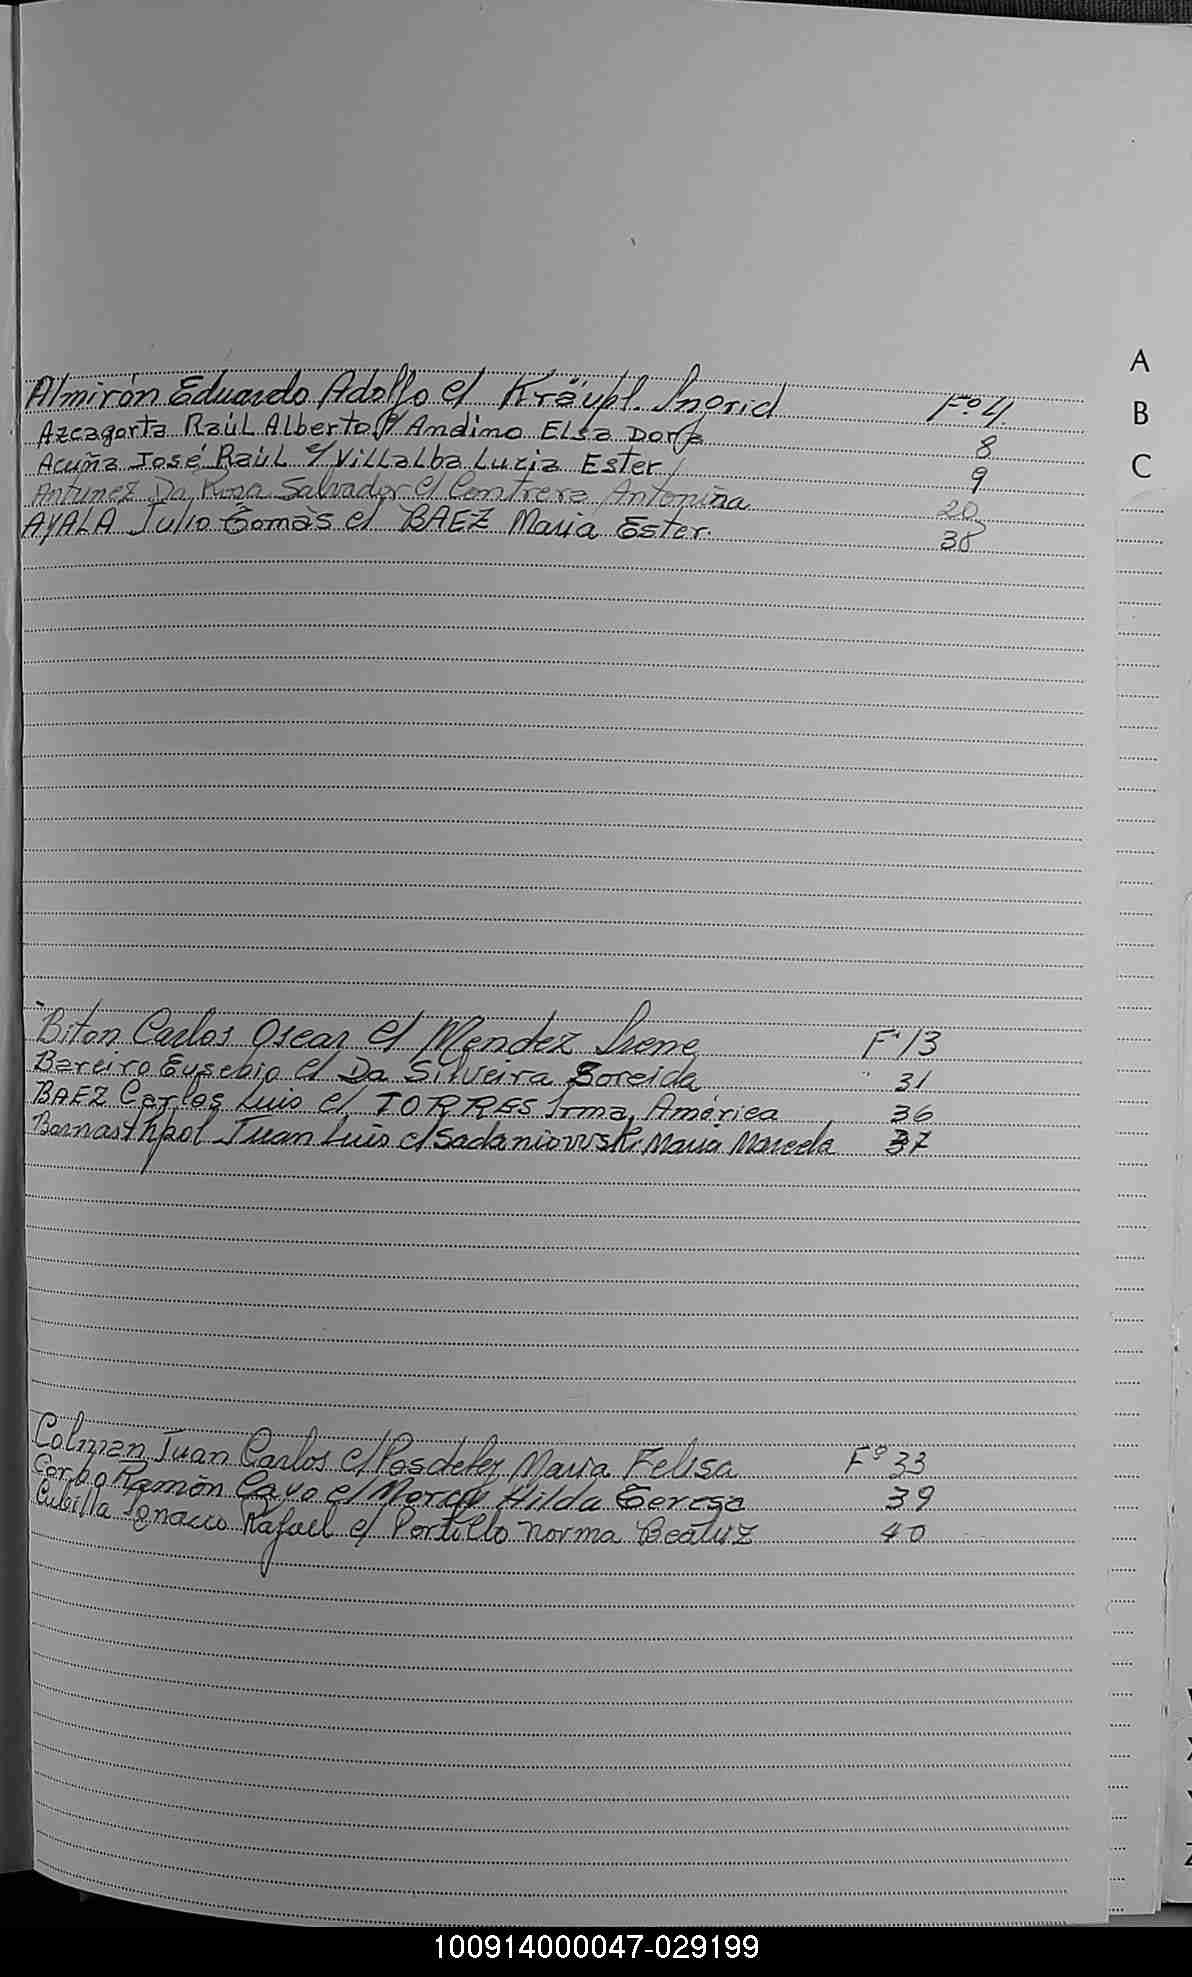 Almirón Eduardo Adolfo c/ Kräupl. Ingrid Fº 4.
Azcagorta Raúl Alberto c/ Andino Elsa Dora 8
Acuña José Raúl c/ Villalba Lucia Ester 9
Antunez Da Rosa Salvador c/ Contrera Antonina 20
AYALA Julio Tomàs c/ BAEZ Maria Ester. 38
A
B
C
Biton Carlos Oscar c/ Mendez Irene Fº 13
Bareiro Eusebio c/ Da Silveira Soreida 31
BAEZ Carlos Luis c/ TORRES Irma América 36
Juan Luis c/ Sadaniowski Maria Marcela 37
Colman Juan Carlos c/ Posdeley Maria Felisa Fº 33
Corbo Ramón Cayo c/ Hilda Teresa 39
Cubilla Ignacio Rafael c/ Portillo Norma Beatriz 40
100914000047-029199